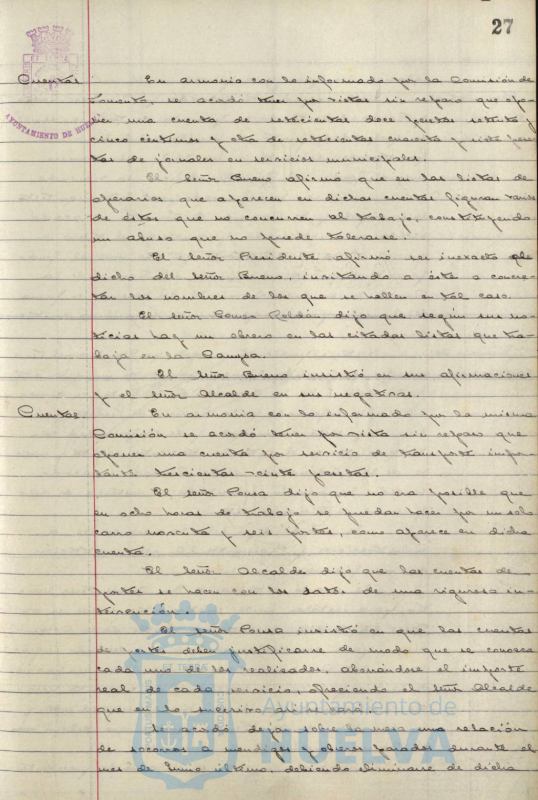 27
AYUNTAMIENTO DE HUELVA
Cuentas. En armonia con lo informado por la Comisión de
Fomento, se acordó tener por vistas sin reparo que opo-
ner una cuenta de setecientas doce pesetas setenta y
cinco céntimos y otra de setecientas cuarenta y siete pese-
tas de jornales en servicios municipales.
El Señor Bueno afirmó que en las listas de
operarios que aparecen en dichas cuentas figuran varios
de éstos que no concurren al trabajo, constituyendo
un abuso que no puede tolerarse.
El Señor Presidente afirmó ser inexacto el
dicho del Señor Bueno, invitando a éste a concre-
tar los nombres de los que se hallen en tal caso.
El Señor Gomez Roldán dijo que según sus no-
ticias hay un obrero en las citadas listas que tra-
baja en la Campsa.
El Señor Bueno insistió en sus afirmaciones
y el Señor Alcalde en sus negativas.
Cuentas. En armonia con lo informado por la misma
Comisión se acordó tener por vista sin reparo que
oponer una cuenta por servicio de transporte impor-
tante trescientas veinte pesetas.
El Señor Ponsa dijo que no era posible que
en ocho horas de trabajo se puedan hacer por un solo
carro noventa y seis portes, como aparece en dicha
cuenta.
El Señor Alcalde dijo que las cuentas de
portes se hacen con los datos de una rigurosa in-
tervención.
El Señor Ponsa insistió en que las cuentas
de portes deben justificarse de modo que se conozca
cada uno de los realizados, abonándose el importe
real de cada servicio, ofreciendo el Señor Alcalde
que en lo sucesivo se hará así.
Se acordó dejar sobre la mesa una relación
de socorros a mendigos y obreros parados durante el
mes de Junio último, debiendo eliminarse de dicha
Ayuntamiento de
HUELVA